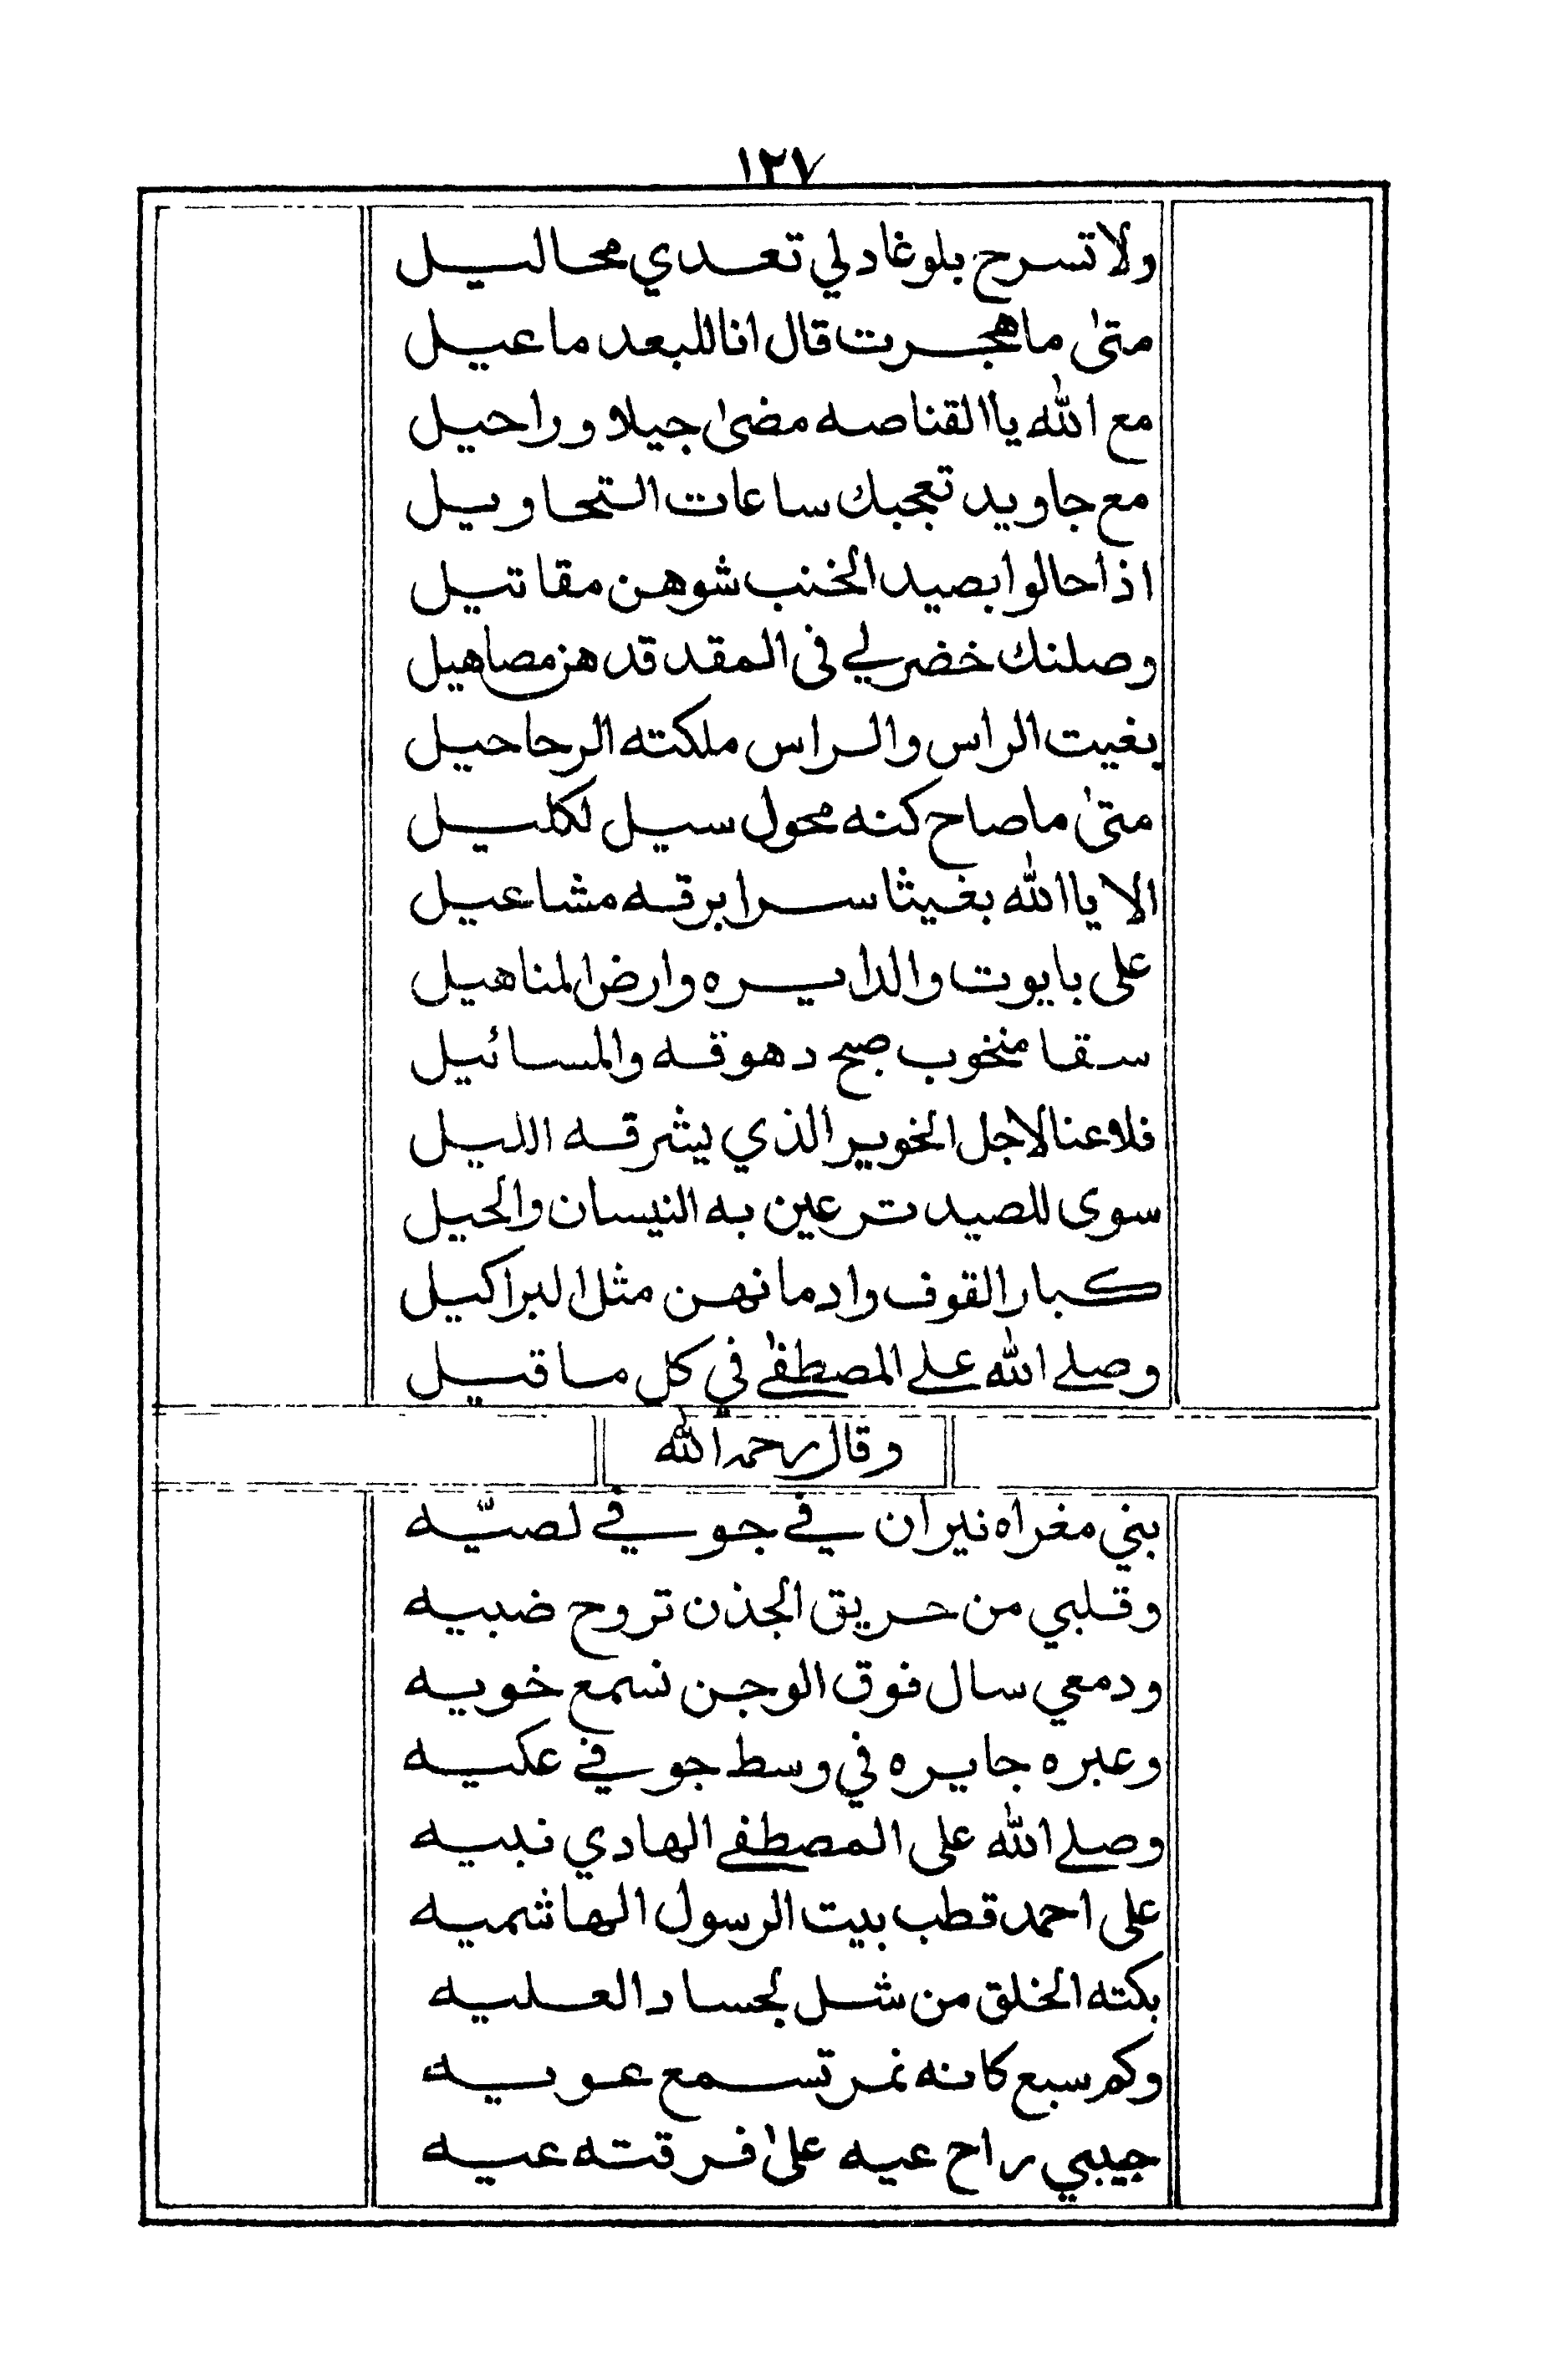 ١٢٧
ولا تسرح بلوغادلي تعدي محاليل
متىٰ ما هجرت قال انا للبعد ما عيل
مع الله يا القناصه مضىٰ جيلا وراحيل
مع جاويد تعجبك ساعات التحاويل
اذا حالوا بصيد الخنب شوهن مقاتيل
وصلنك خضر لي في المقد قد هز مصاهيل
بغيت الراس والراس ملكته الرحاحيل
متىٰ ما صاح كنه محول سيل لكليل
الا يا الله بغيثا سرا برقه مشاعيل
على بايوت والدايره وارض المناهيل
سقا منخوب صبح دهوقه والمسائيل
فلا عنا لاجل الخوير الذي يشرقه الليل
سوى للصيد ترعين به النيسان والحيل
كبار القوف وادمانهن مثل البراكيل
وصلى الله على المصطفىٰ في كل ما قيل
وقال رحمه الله
بني مغراه نيران في جوفي لصيّه
وقلبي من حريق الجذن تروح ضبيه
ودمعي سال فوق الوجن نسمع خويه
وعبره جايره في وسط جوفي عكيه
وصلى الله على المصطفى الهادي نبيه
على احمد قطب بيت الرسول الهاشميه
بكته الخلق من شل لجساد العليه
وكم سبع كانه نمر تسمع عويه
حبيبي راح عيه علىٰ فرقته عيه